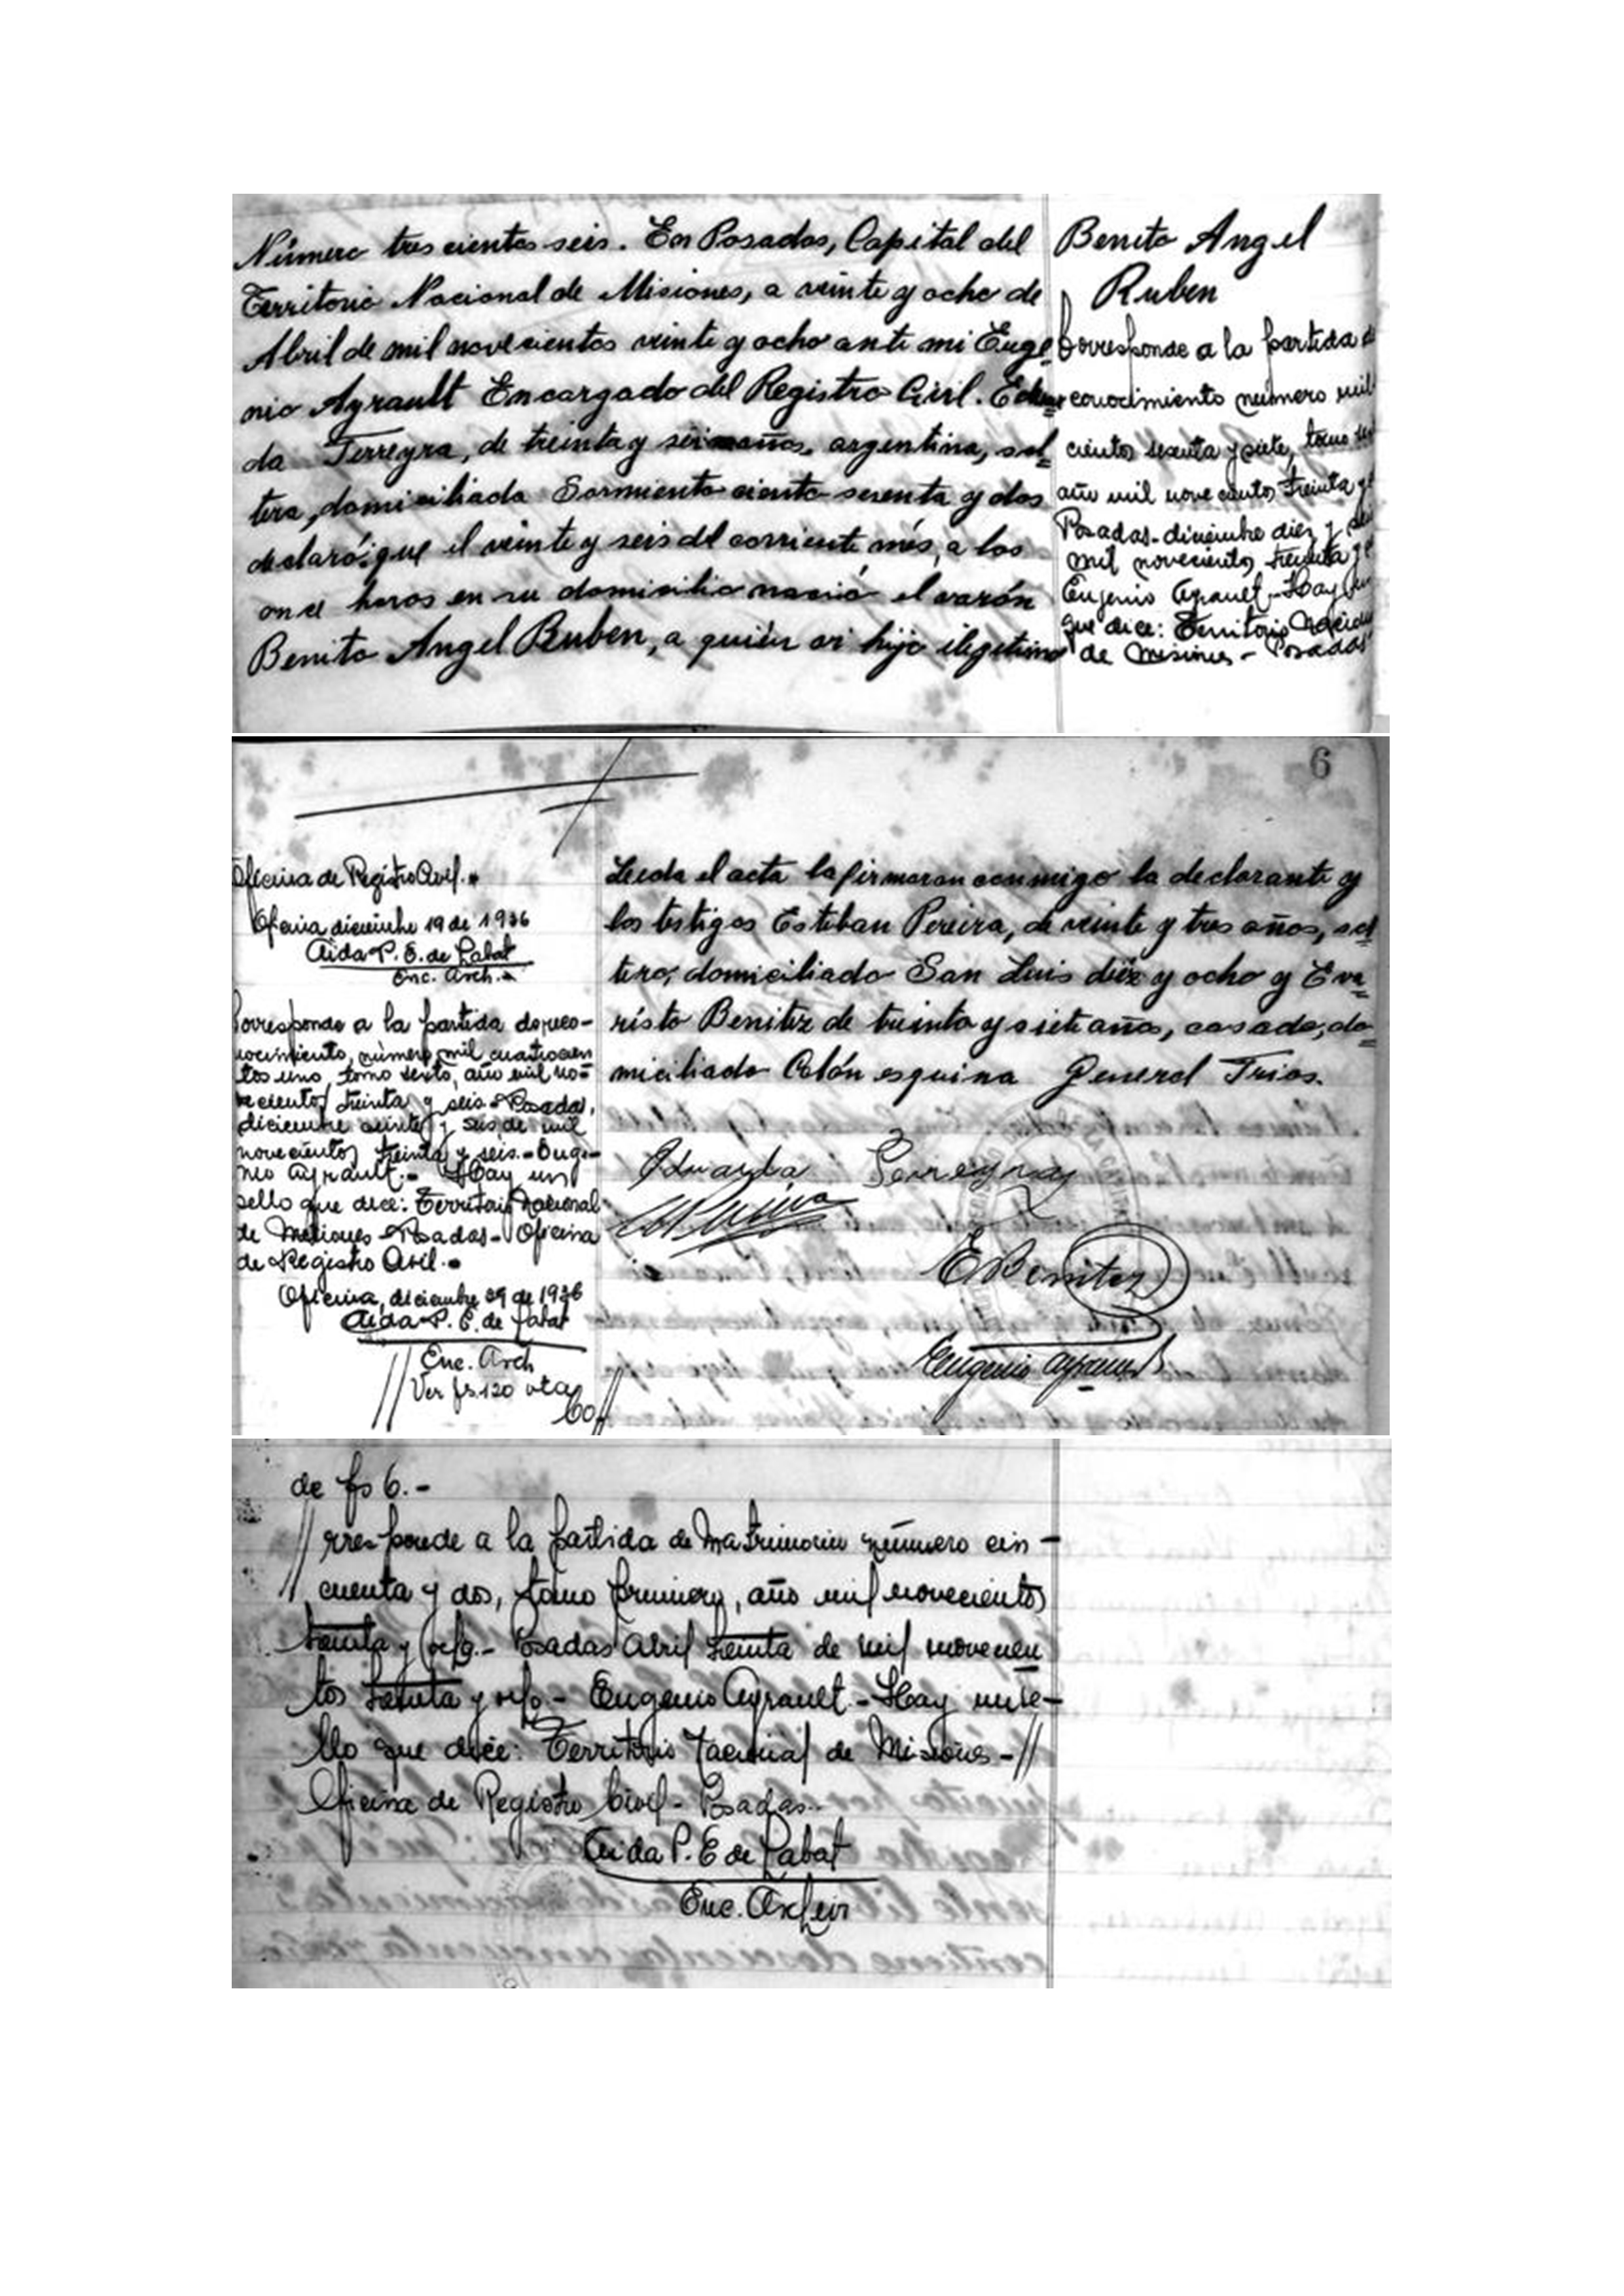 Número trescientos seis. En Posadas, Capital del
Territorio Nacional de Misiones, a veinte y ocho de
Abril de mil novecientos veinte y ocho ante mi Euge
nio Ayrault Encargado del Registro Civil. Eduar=
da Ferreyra, de treinta y seis años, argentina, sol=
tera, domiciliada Sarmiento ciento setenta y dos
declaró: que el veinte y seis del corriente més, a las
once horas en su domicilio nació el varón
Benito Angel Ruben, a quién vi hijo ilegitimo
Benito Angel
Ruben
Corresponde a la partida
conocimiento número mil
cientos sesenta y siete, tomo
año mil novecientos treinta y
Posadas-diciembre diez y
mil novecientos treinta y
Eugenio Ayrault-Hay un
que dice: Territorio Nacional
de Misiones - Posadas
6
Oficina de Registro Civil.-
Oficina diciembre 19 de 1936
Aida P. E. de Labat
Enc. Arch.-
Corresponde a la partida de reco-
nocimiento, número mil cuatrocien
tos uno, tomo sexto, año mil no=
vecientos treinta y seis-Posadas,
diciembre veinte y seis de mil
novecientos treinta y seis.-Euge-
nio Ayrault.- Hay un
sello que dice: Territorio Nacional
de Misiones-Posadas-Oficina
de Registro Civil.-
Oficina, diciembre 29 de 1936
Aida P. E. de Labat
Enc. Arch
// Ver fs. 120 vta
Co//
Leida el acta la firmaron conmigo la declarante y
los testigos Esteban Pereira, de veinte y tres años, sol
tero, domiciliado San Luis diéz y ocho y Eva=
rísto Benitez de treinta y siete años, casado, do=
miciliado Colón esquina General Frias.
Eduarda Ferreyra
E Pereira
E Benitez
Eugenio Ayrault
de fs 6.-
// rresponde a la partida de Matrimonio número cin-
cuenta y dos, tomo primero, año mil novecientos
treinta y ocho.- Posadas Abril treinta de mil novecien
tos treinta y ocho.- Eugenio Ayrault.- Hay un se-
llo que dice: Territorio Nacional de Misiones -//
Oficina de Registro Civil - Posadas.-
Aida P. E de Labat
Enc. Archivo